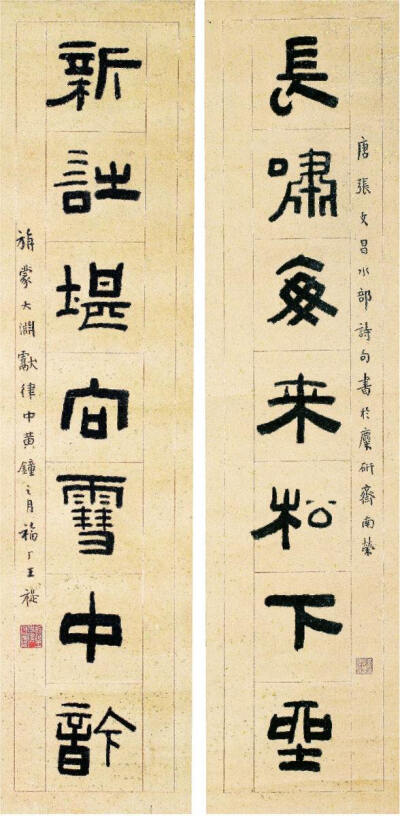 唐張文昌水部詩句書於麋研齋南榮
長嘯每来松下坐
新詩堪向雪中吟
旃蒙大淵獻律中黄鐘之月福厂王禔